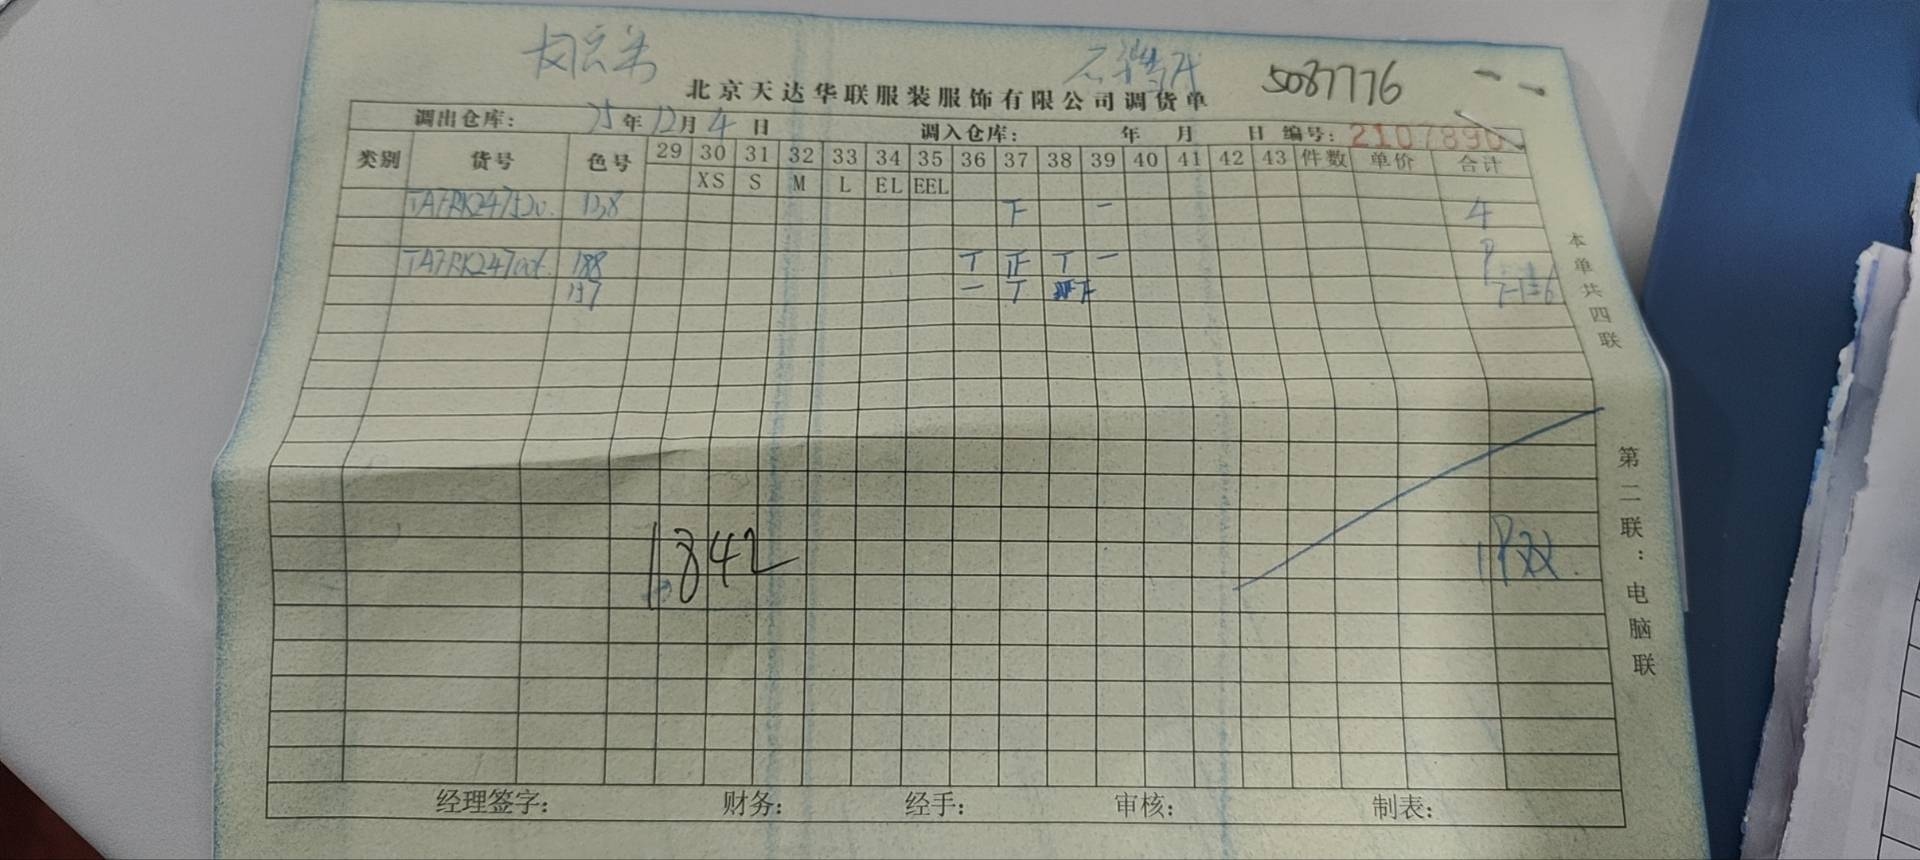 5087776
北京天达华联服装服饰有限公司调货单
调出仓库： 25年12月4日 调入仓库： 年 月 日 编号：2107890
类别 货号 色号 29 30 31 32 33 34 35 36 37 38 39 40 41 42 43 件数 单价 合计
XS S M L EL EEL
138 下 一 4
188 丅 正 丅 一
137 一 丅 下 6
1842
经理签字： 财务： 经手： 审核： 制表：
本单共四联
第二联：电脑联